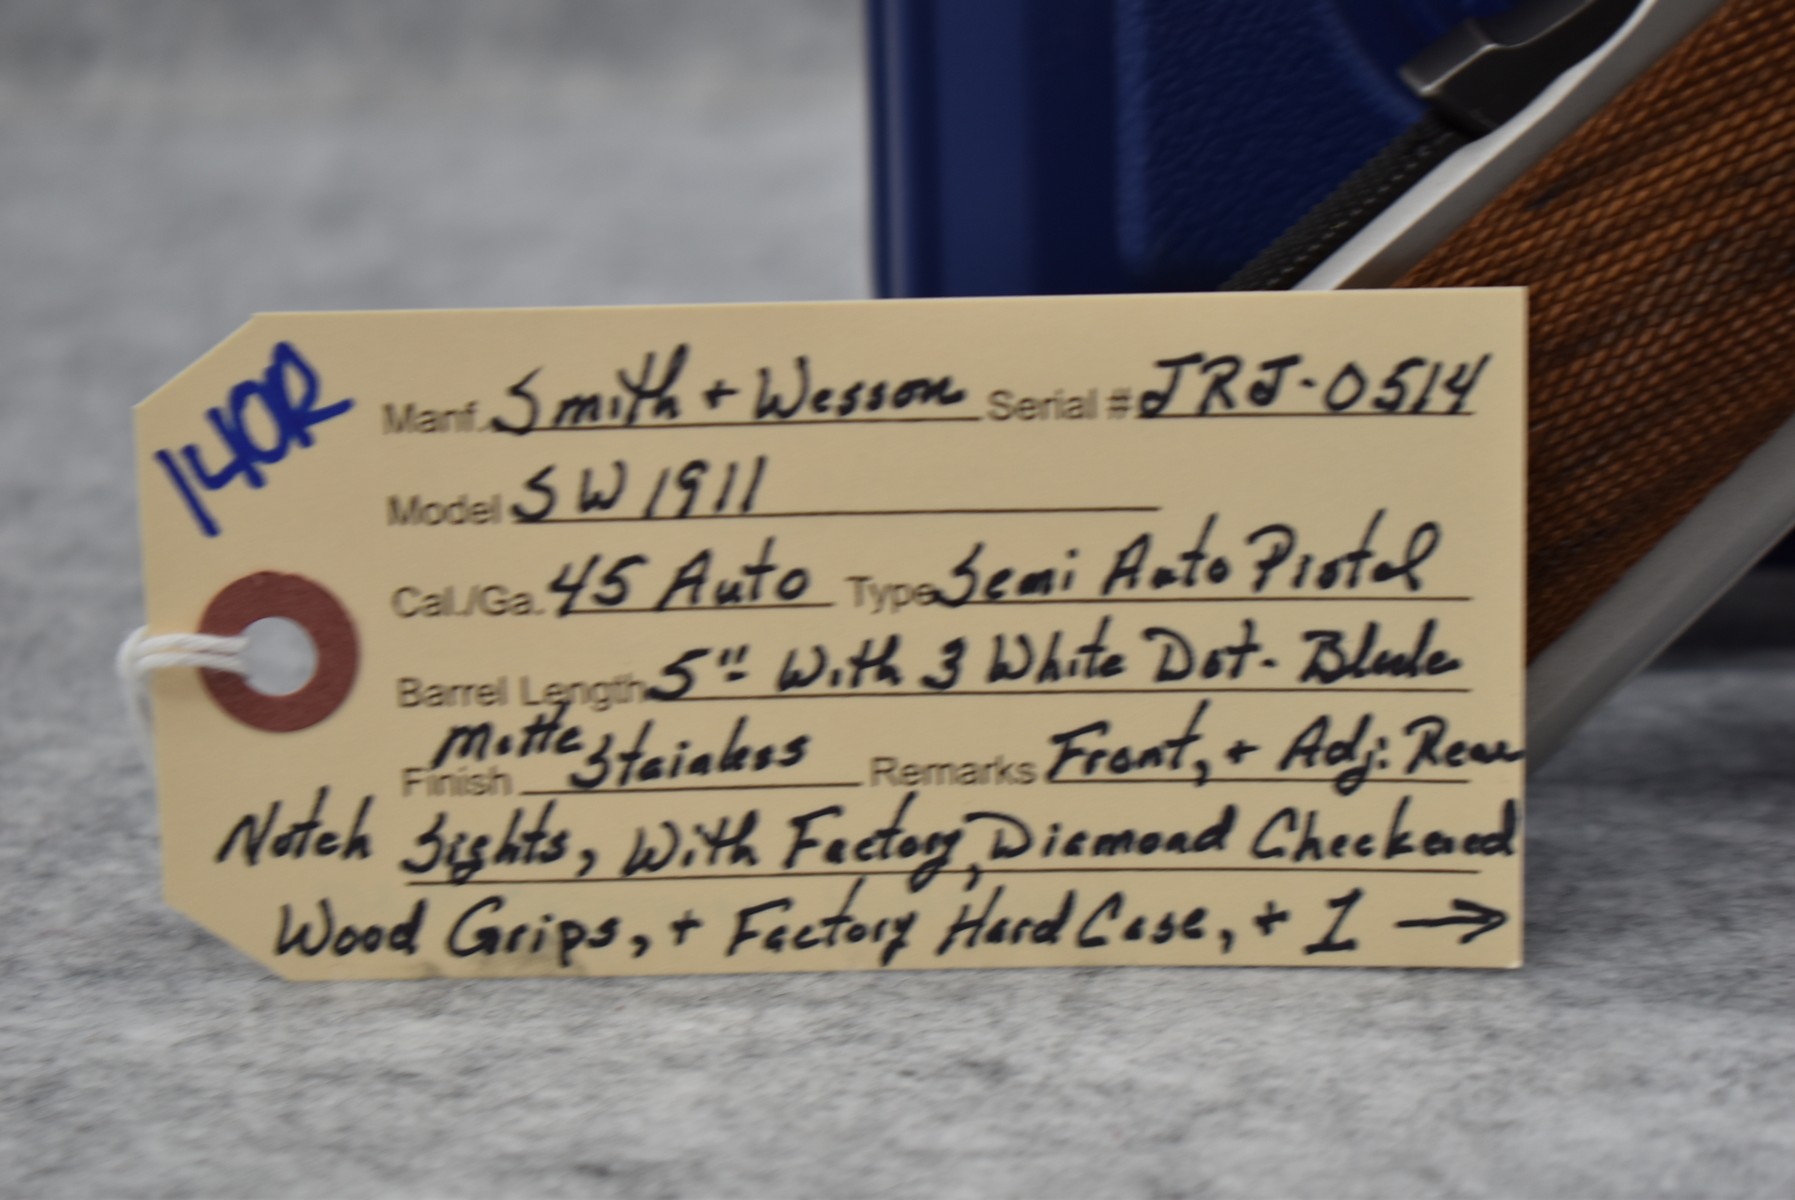 140R
Manf. Smith + Wesson Serial # JRJ-0514
Model SW1911
Cal./Ga. 45 Auto Type Semi Auto Pistol
Barrel Length 5" With 3 White Dot - Blade
Matte
Finish Stainless Remarks Front, + Adj. Rear
Notch Sights, With Factory, Diamond Checkered
Wood Grips, + Factory Hard Case, + 1 →